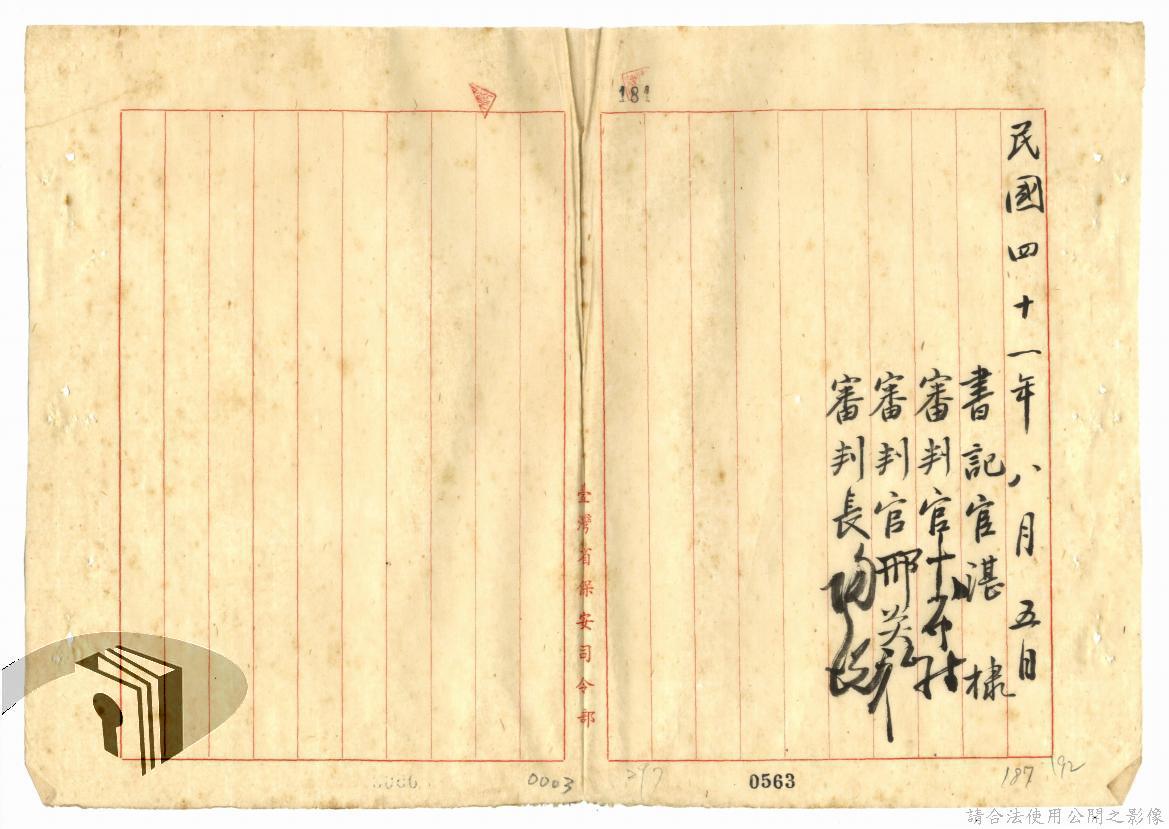 181
民國四十一年八月五日
書記官湛棣
審判官
審判官邢炎
審判長
臺灣省保安司令部
0003
297
0563
187
192
請合法使用公開之影像